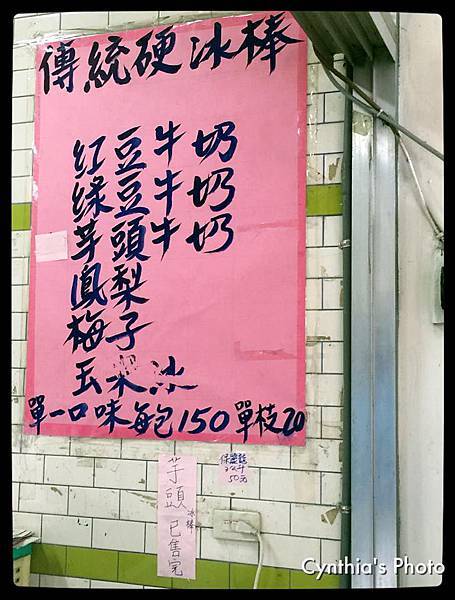 傳統硬冰棒
紅豆牛奶
綠豆牛奶
芋頭牛奶
鳳梨
梅子
玉米冰
單一口味每包150單枝20
芋頭冰棒已售完
50元
Cynthia's Photo